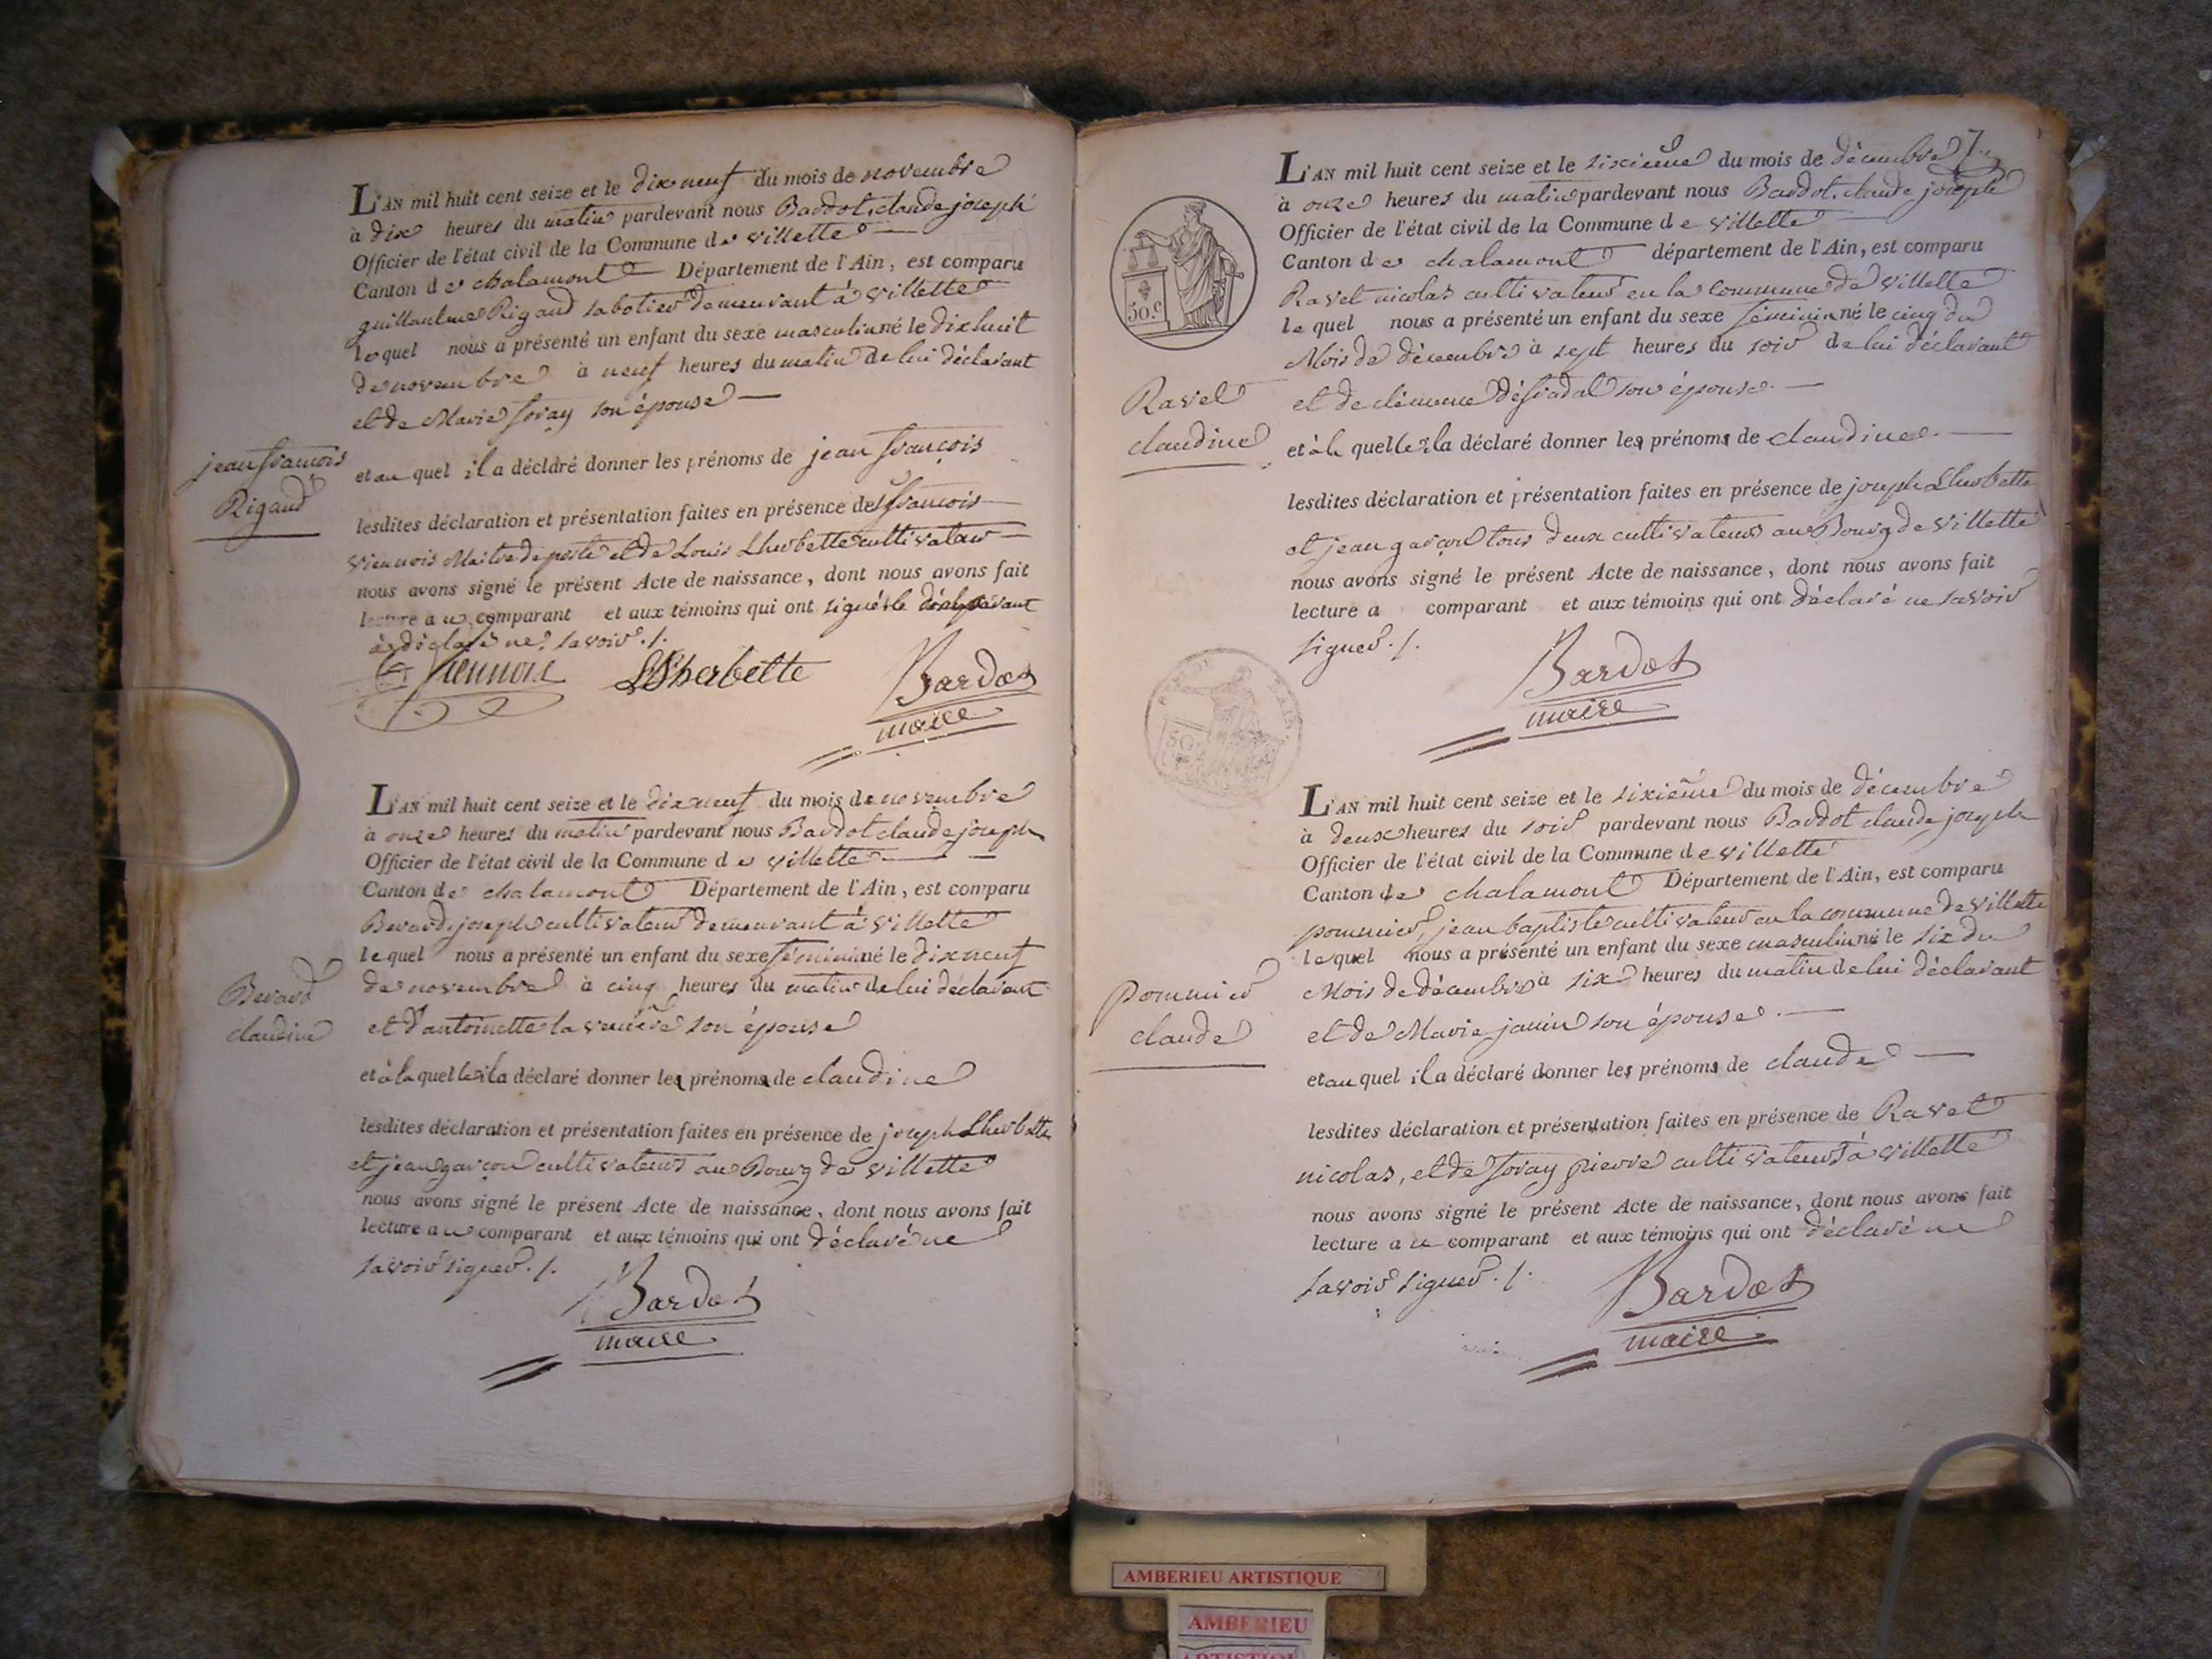 L'AN mil huit cent seize et le dix neuf du mois de novembre
à dix heures du matin pardevant nous Bardot, claude joseph
Officier de l'état civil de la Commune de villette
Canton de chalamont Département de l'Ain, est comparu
guillaulme Rigaud sabotier demeurant à villette
lequel nous a présenté un enfant du sexe masculin né le dixhuit
de novembre à neuf heures du matin de lui déclarant
et de Marie foray son épouse
jean francois
Rigaud
et au quel il a déclaré donner les prénoms de jean françois
lesdites déclaration et présentation faites en présence de françois
viennois Maitre de poste et de Louis Lherbette cultivateur
nous avons signé le présent Acte de naissance, dont nous avons fait
lecture au comparant et aux témoins qui ont signés le déclarant
à déclaré ne savoir ./.
Viennois LLherbette Bardot
maire
L'AN mil huit cent seize et le dix neuf du mois de novembre
à onze heures du matin pardevant nous Bardot claude joseph
Officier de l'état civil de la Commune de villette
Canton de chalamont Département de l'Ain, est comparu
Berard, joseph cultivateur demeurant à villette
lequel nous a présenté un enfant du sexe féminin né le dix neuf
de novembre à cinq heures du matin de lui déclarant
et d'antoinette la son épouse
Berard
claudine
et à la quelle il a déclaré donner les prénoms de claudine
lesdites déclaration et présentation faites en présence de joseph Lherbette
et jean garçon cultivateurs au Bourg de villette
nous avons signé le présent Acte de naissance, dont nous avons fait
lecture au comparant et aux témoins qui ont déclaré ne
savoir signer ./.
Bardot
maire
7
L'AN mil huit cent seize et le sixième du mois de décembre
à onze heures du matin pardevant nous Bardot, claude joseph
Officier de l'état civil de la Commune de villette
Canton de chalamont département de l'Ain, est comparu
Ravet nicolas cultivateur en la commune de villette
lequel nous a présenté un enfant du sexe féminin né le cinq du
Mois de décembre à sept heures du soir de lui déclarant
et de clémence son épouse
50.c
Ravet
claudine
et à la quelle il a déclaré donner les prénoms de claudine
lesdites déclaration et présentation faites en présence de joseph Lherbette
et jean garçon tous deux cultivateurs au Bourg de villette
nous avons signé le présent Acte de naissance, dont nous avons fait
lecture a comparant et aux témoins qui ont déclaré ne savoir
signer ./.
Bardot
maire
L'AN mil huit cent seize et le sixième du mois de décembre
à deux heures du soir pardevant nous Bardot claude joseph
Officier de l'état civil de la Commune de villette
Canton de chalamont Département de l'Ain, est comparu
pommier, jean baptiste cultivateur en la commune de villette
lequel nous a présenté un enfant du sexe masculin né le six du
Mois de décembre à six heures du matin de lui déclarant
et de Marie janin son épouse
Pommier
claude
et au quel il a déclaré donner les prénoms de claude
lesdites déclaration et présentation faites en présence de Ravet
nicolas, et de foray pierre cultivateurs à villette
nous avons signé le présent Acte de naissance, dont nous avons fait
lecture au comparant et aux témoins qui ont déclaré ne
savoir signer ./.
Bardot
maire
AMBERIEU ARTISTIQUE
AMBERIEU
ARTISTIQU